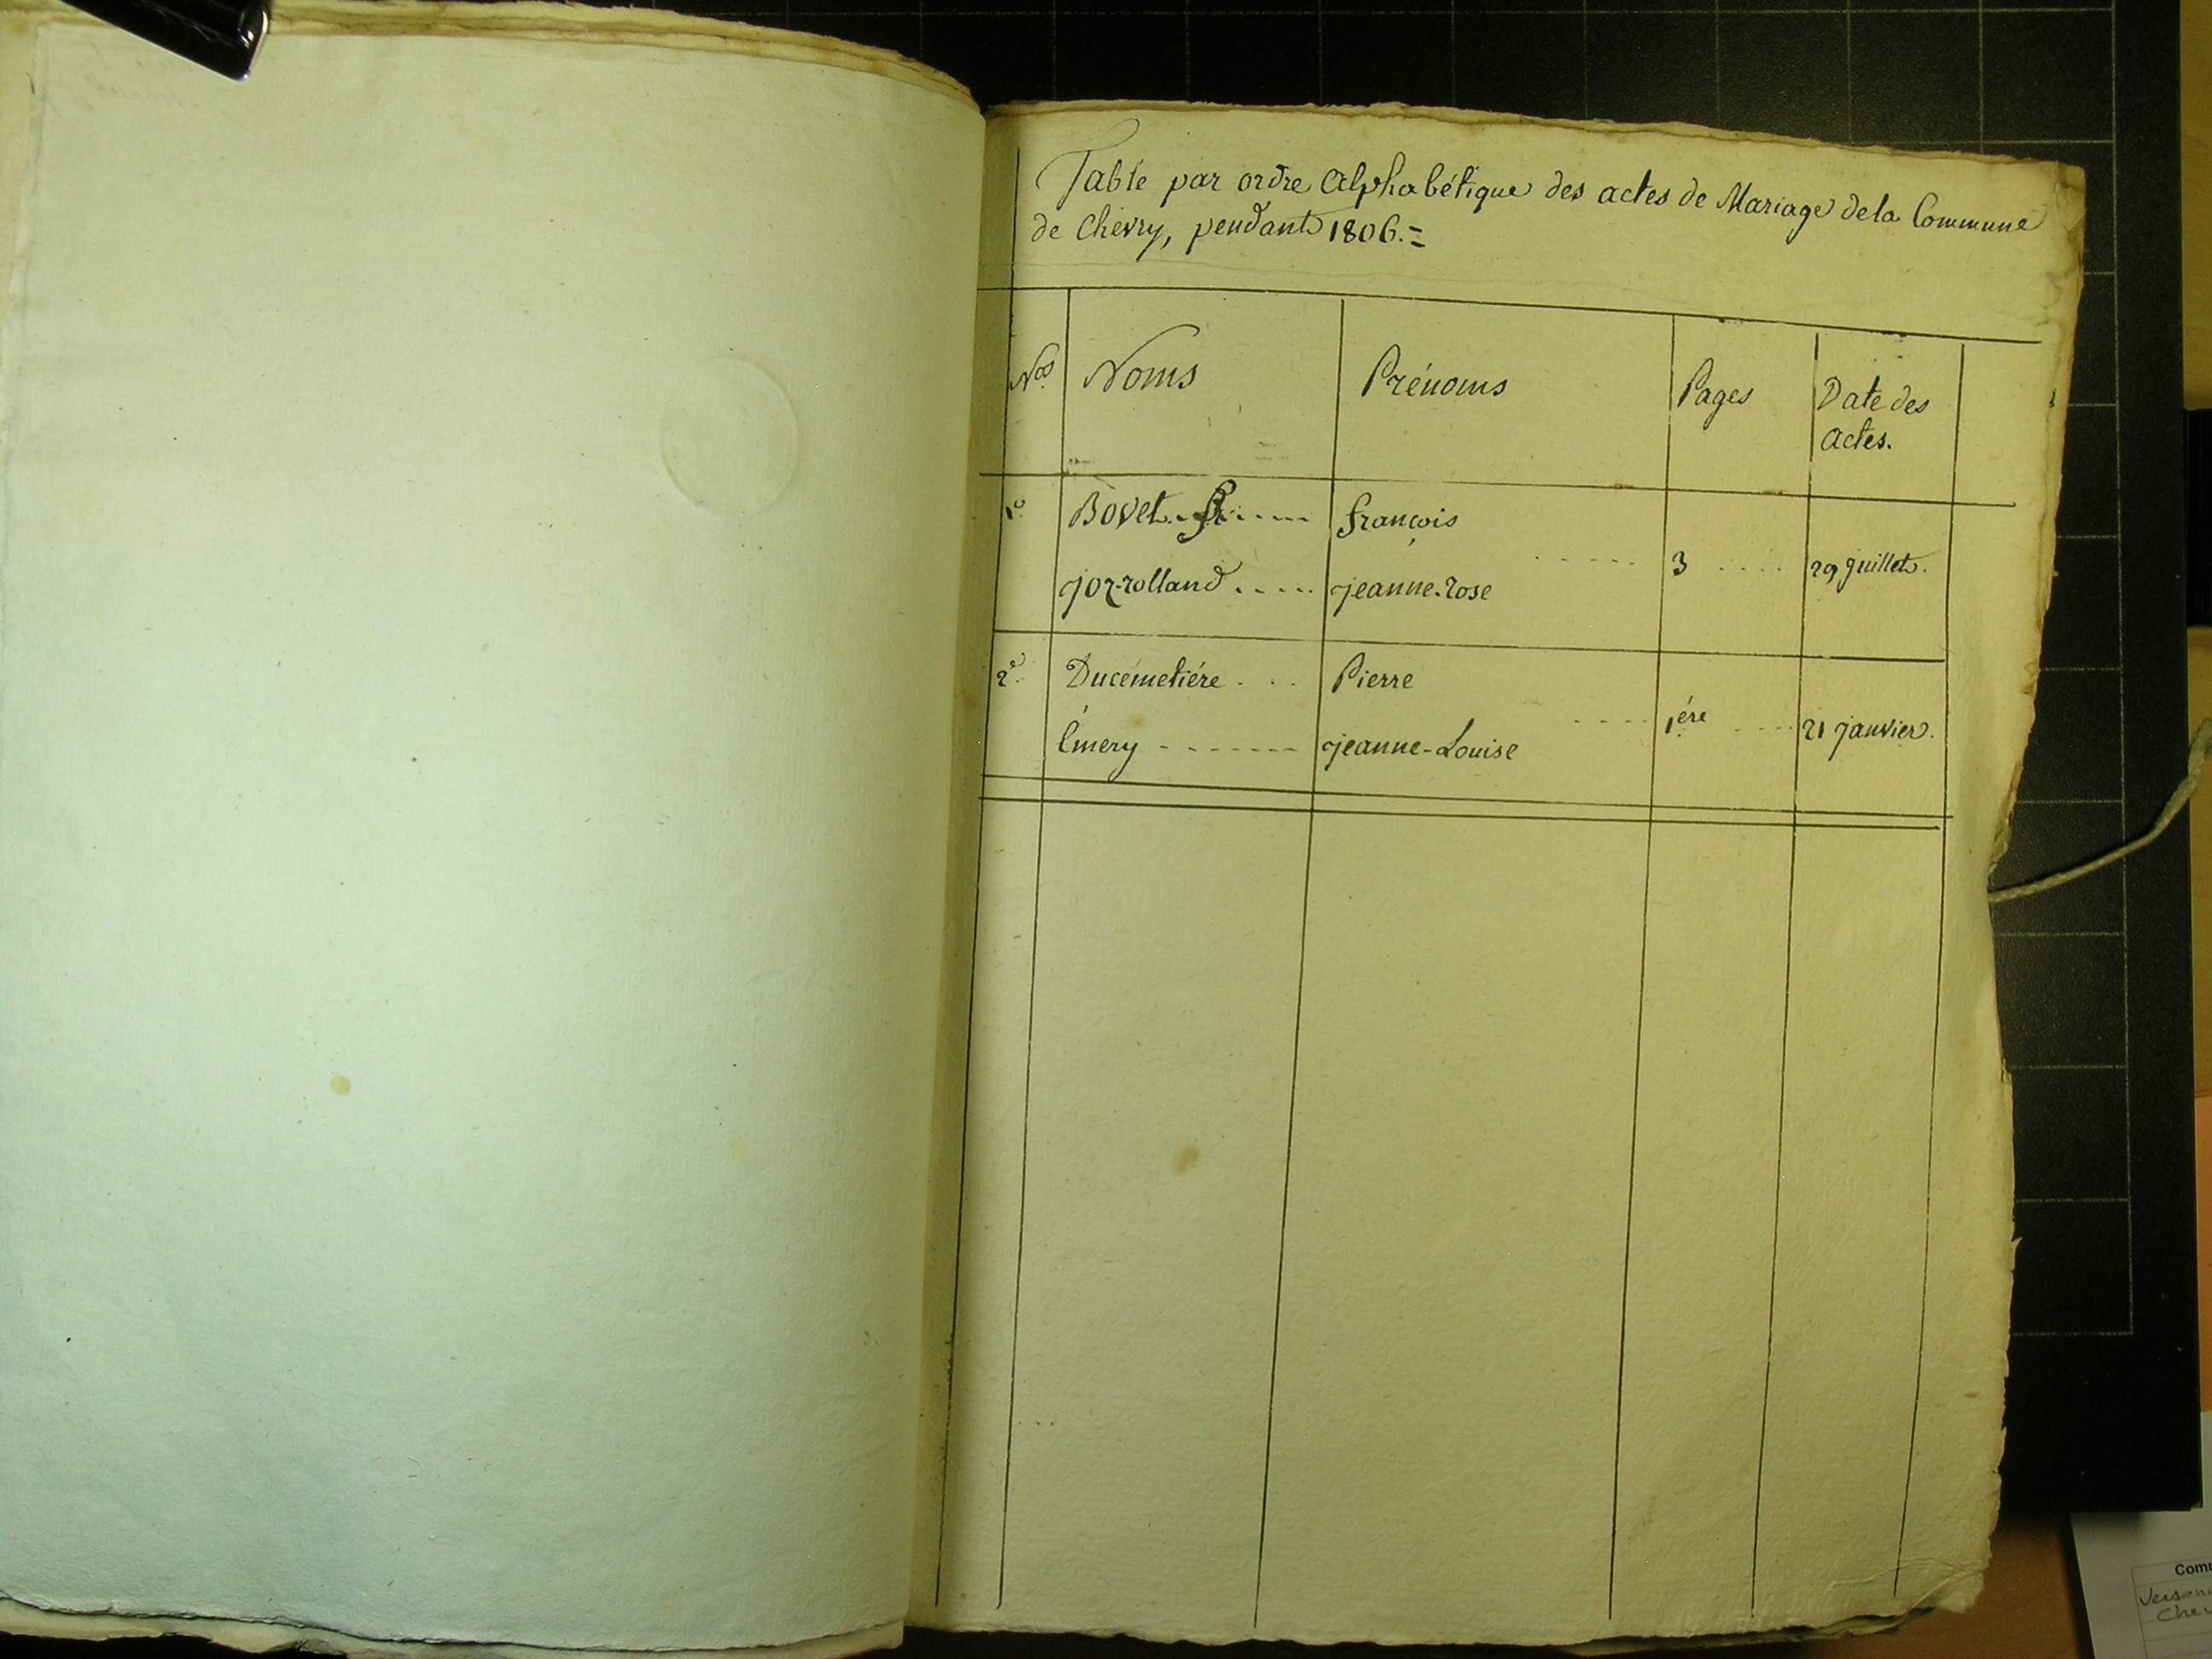 Table par ordre Alphabétique des actes de Mariage de la Commune
de Chevry, pendant 1806.=
Nos. Noms Prénoms Pages Date des
Actes.
1e Bovet françois
3 29 juillet.
joz-rolland jeanne-rose
2e Ducemetiére Pierre
1ére 21 janvier.
Émery jeanne-Louise
Com
Che